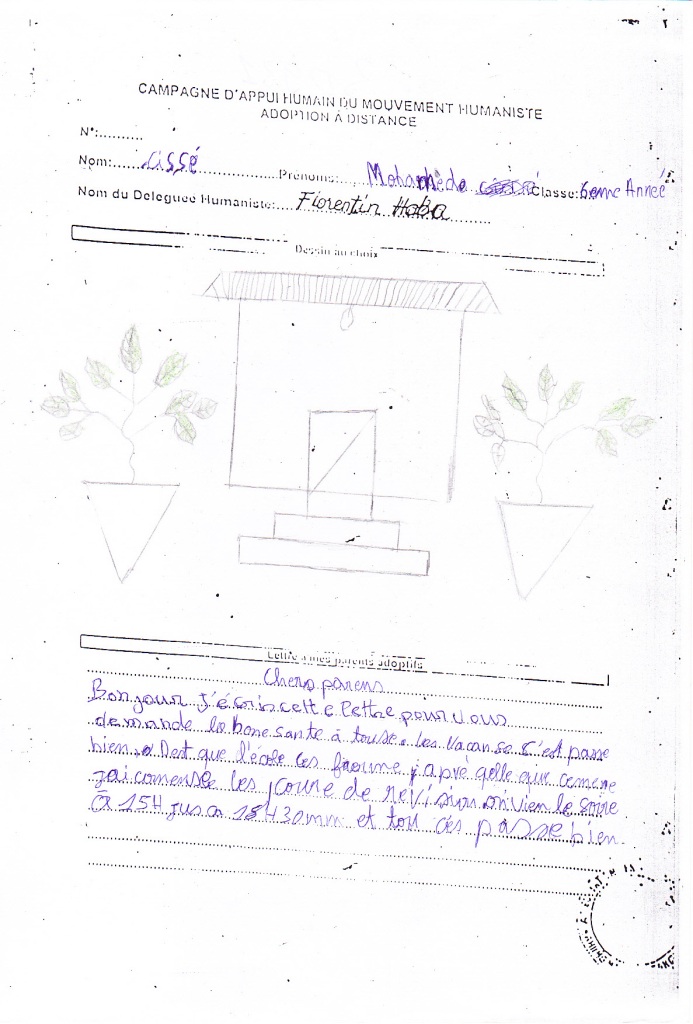 CAMPAGNE D'APPUI HUMAIN DU MOUVEMENT HUMANISTE
ADOPTION À DISTANCE
N°:..........
Nom: Cissé Prénoms: Mohamède Classe: 6eme Anneé
Nom du Deleguee Humaniste: Florentin Haba
Dessin au choix
Lettre a mes parents adoptifs
Chers parens
Bonjour J'écrin cette lettre pour vous
demande la bone sante à touse. les vacanse s'est passe
bien. Dest que l'école ces froume j'aprè qelle que cemene
jai comensée les coure de revision on vien le soire
à 15H jusa 18H30mm et tou cés passe bien.